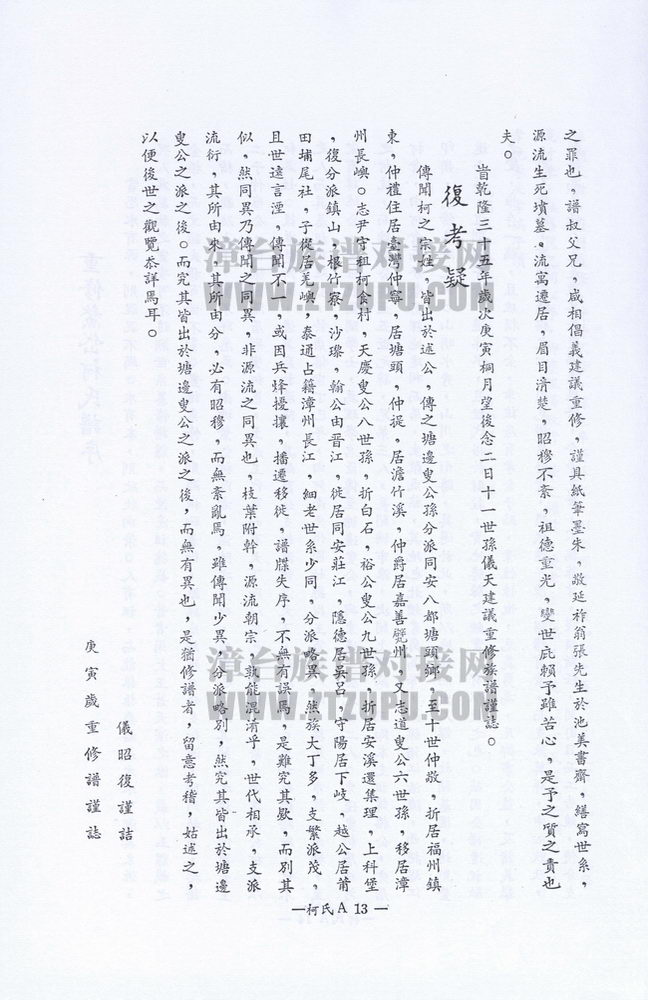 之罪也，譜叔父兄，咸相倡義建議重修，謹具紙筆墨朱，敬延祚翁張先生於池美書齋，繕寫世系，
源流生死墳墓。流寓遷居，眉目清楚，昭穆不紊，祖德重光，孌世庇賴予雖苦心，是予之質之責也
夫。
旹乾隆三十五年歲次庚寅桐月望後念二日十一世孫儀天建議重修族譜謹誌。
復考疑
傳聞柯之宗姓，皆出於述公，傳之塘邊叟公孫分派同安八都塘頭鄉，至十世仲敬，折居福州鎮
東，仲禮住居臺灣仲寧，居塘頭，仲提，居澹竹溪，仲爵居嘉善壁州，又志道叟公六世孫，移居漳
州長嶼。志尹守祖柯食村，天慶叟公八世孫，折白石，裕公叟公九世孫，折居安溪還集理，上科堡
，復分派鎮山，根竹寮，沙瓈，翰公由晋江，徙居同安莊江，隱德居吳呂，守陽居下岐，越公居莆
田埔尾社，子從居羌嶼，泰通占籍漳州長江，細老世系少同，分派略異，然族大丁多，支繁派茂。
且世遠言湮，傳聞不一，或因兵烽擾攘，播遷移徙，譜牒失序，不無有誤焉，是難究其歟，而別其
似，然同異乃傳聞之同異，非源流之同異也，枝葉附幹，源流朝宗，孰能混淆乎，世代相承，支派
流衍，其所由來，其所由分，必有昭穆，而無紊亂焉，雖傳聞少異，分派略別，然究其皆出於塘邊
叟公之派之後。而究其皆出於塘邊叟公之派之後，而無有異也，是猶修譜者，留意考稽，姑述之，
以便後世之觀覽恭詳焉耳。
儀昭復謹詰
庚寅歲重修譜謹誌
—柯氏A 13—
漳台族谱对接网
WWW.ZTZUPU.COM
漳台族谱对接网
WWW.ZTZUPU.COM